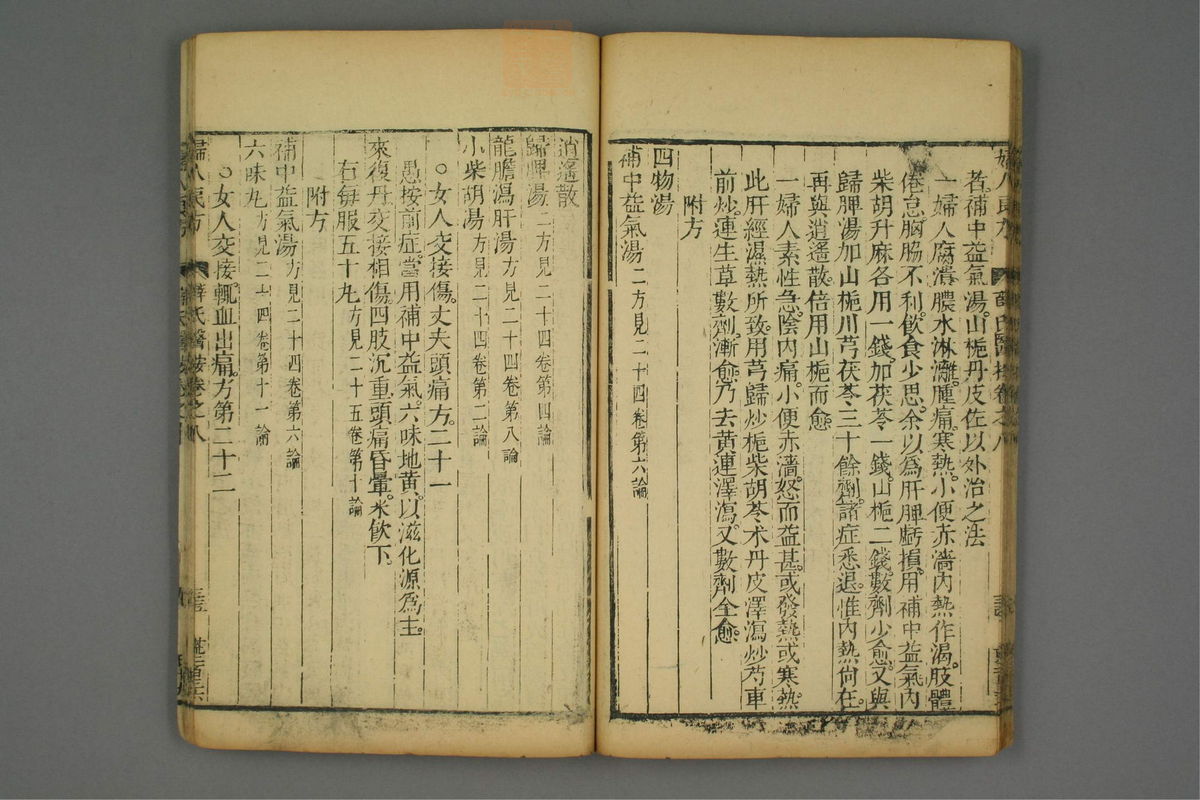 者補中益氣湯山梔丹皮佐以外治之法
一婦人腐潰膿水淋灕腫痛寒熱小便赤濇內熱作渴肢體
倦怠胸脇不利飲食少思余以爲肝脾虧損用補中益氣內
柴胡升麻各用一錢加茯苓一錢山梔二錢數劑少愈又與
歸脾湯加山梔川芎茯苓三十餘劑諸症悉退惟內熱尚在
再與逍遙散倍用山梔而愈
一婦人素性急陰內痛小便赤濇怒而益甚或發熱或寒熱
此肝經濕熱所致用芎歸炒梔柴胡苓术丹皮澤瀉炒芍車
前炒連生草數劑漸愈乃去黃連澤瀉又數劑全愈
附方
四物湯
補中益氣湯二方見二十四卷第六論
逍遙散
歸脾湯二方見二十四卷第四論
龍膽瀉肝湯方見二十四卷第八論
小柴胡湯方見二十四卷第二論
○女人交接傷丈夫頭痛方二十一
愚按前症當用補中益氣六味地黃以滋化源爲主
來復丹交接相傷四肢沉重頭痛昏暈米飲下
右每服五十丸方見二十五卷第十論
附方
補中益氣湯方見二十四卷第六論
六味丸方見二十四卷第十一論
○女人交接輒血出痛方第二十二